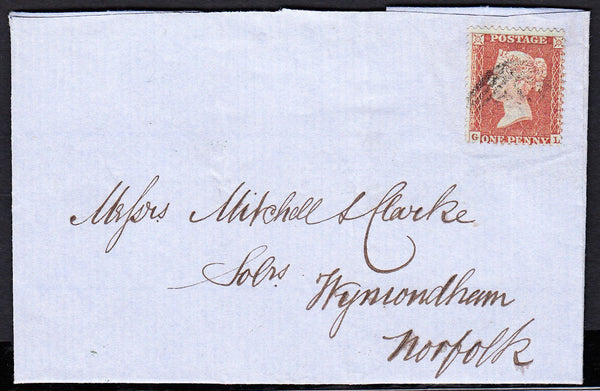 POSTAGE
G ONE PENNY L
Messrs. Mitchell & Clarke
Solrs.
Wymondham
Norfolk